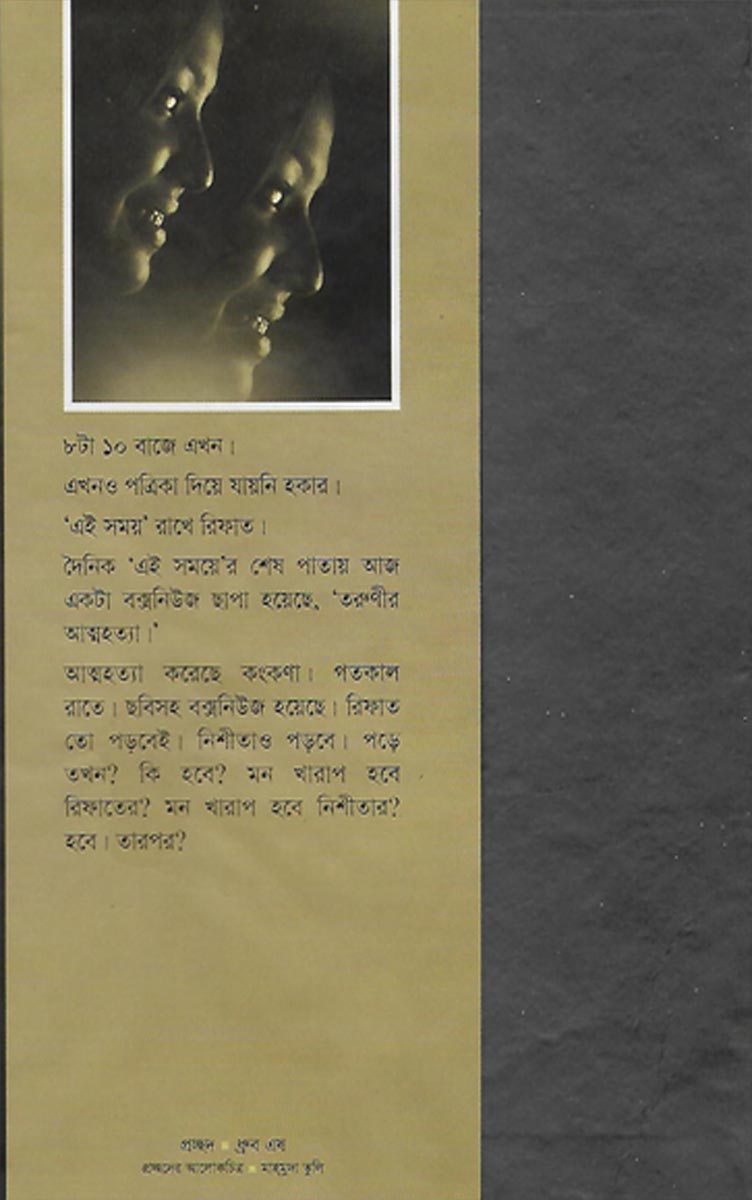 ৮টা ১০ বাজে এখন।
এখনও পত্রিকা দিয়ে যায়নি হকার।
‘এই সময়’ রাখে রিফাত।
দৈনিক ‘এই সময়ে’র শেষ পাতায় আজ
একটা বক্সনিউজ ছাপা হয়েছে, ‘তরুণীর
আত্মহত্যা।’
আত্মহত্যা করেছে কংকণা। গতকাল
রাতে। ছবিসহ বক্সনিউজ হয়েছে। রিফাত
তো পড়বেই। নিশীতাও পড়বে। পড়ে
তখন? কি হবে? মন খারাপ হবে
রিফাতের? মন খারাপ হবে নিশীতার?
হবে। তারপর?
প্রচ্ছদ ▪ ধ্রুব এষ
প্রচ্ছদের আলোকচিত্র ▪ মাহমুদা তুলি